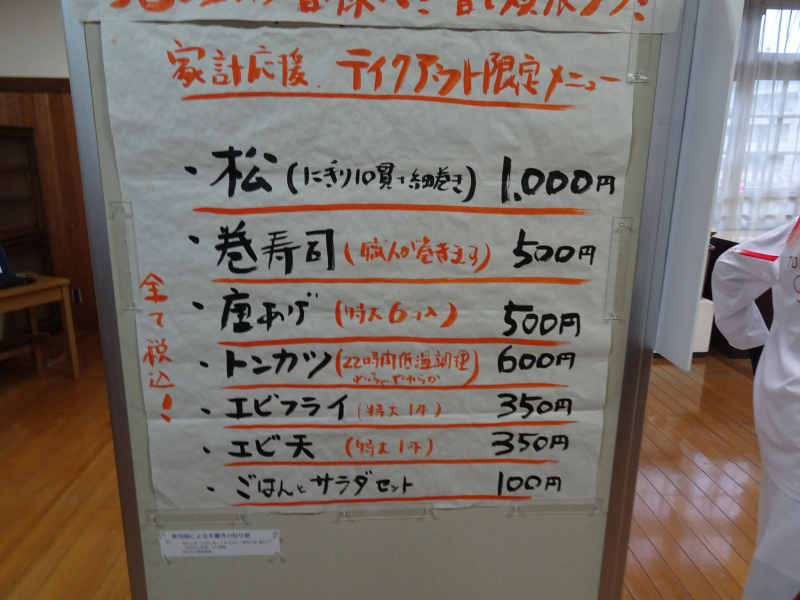 家計応援、テイクアウト限定メニュー
・松(にぎり10貫+細巻き) 1.000円
・巻寿司(職人が巻きます) 500円
・唐あげ(特大6コ入) 500円
・トンカツ(22時間低温調理 めっちゃやわらか) 600円
・エビフライ(特大1本) 350円
・エビ天(特大1本) 350円
・ごはんとサラダセット 100円
全て税込!
寿司屋による手書きの貼り紙